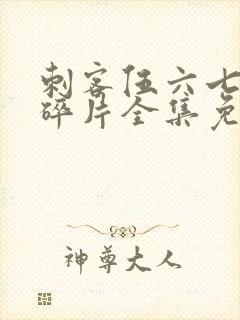 刺客伍六七
碎片全集免
神尊大人